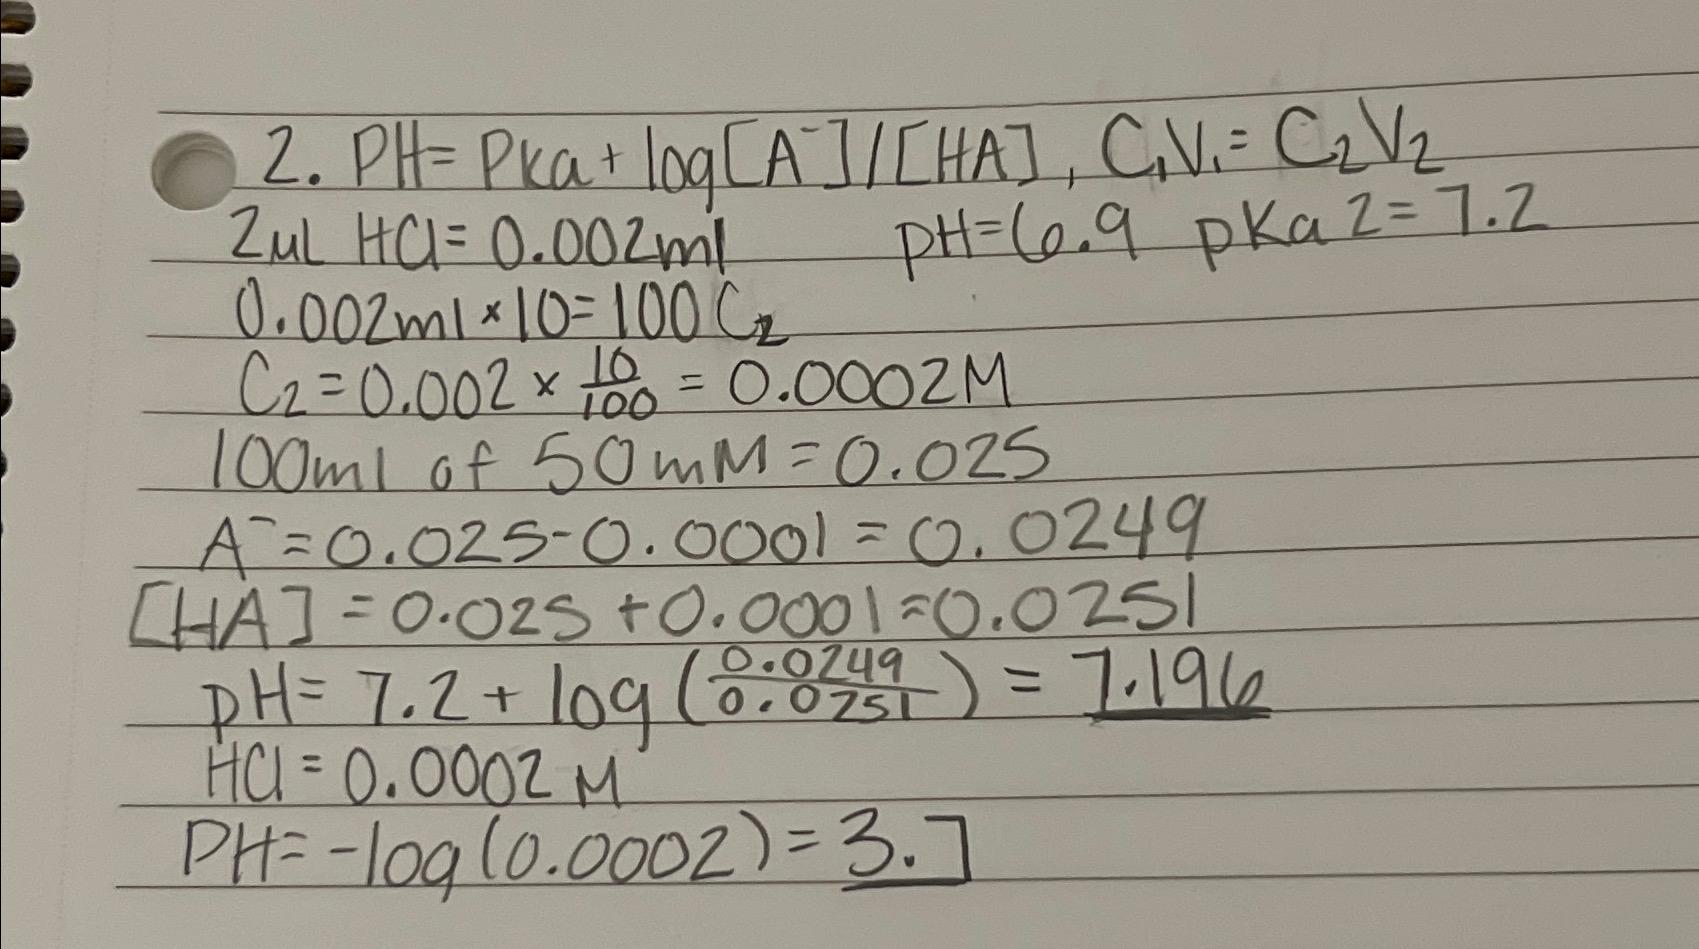 2. PH= Pka+ log[A⁻]/[HA], C₁V₁= C₂V₂
2uL HCl= 0.002ml pH=6.9 pKa2=7.2
0.002ml×10=100C₂
C₂=0.002×10/100=0.0002M
100ml of 50mM=0.025
A⁻=0.025-0.0001=0.0249
[HA]=0.025+0.0001=0.0251
pH= 7.2+ log(0.0249/0.0251)= 7.196
HCl=0.0002M
PH=-log(0.0002)=3.7